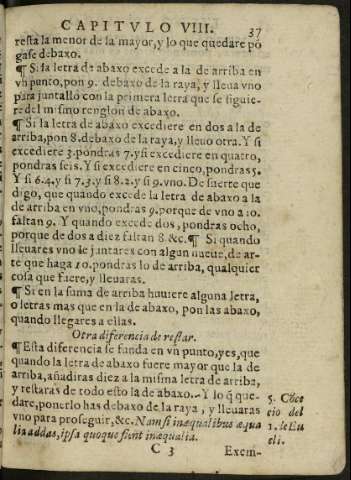 CAPITVLO VIII. 37
resta la menor de la mayor, y lo que quedare pō
gase debaxo.
¶ Si la letra de abaxo excede a la de arriba en
vn punto, pon 9. debaxo de la raya, y lleua vno
para juntallo con la primera letra que se siguie-
re del mismo renglon de abaxo.
¶ Si la letra de abaxo excediere en dos a la de
arriba, pon 8. debaxo de la raya, y lleuo otra. Y si
excediere 3. pondras 7. y si excediere en quatro,
pondras seis. Y si excediere en cinco, pondras 5.
Y si 6. 4. y si 7. 3. y si 8. 2. y si 9. vno. De suerte que
digo, que quando excede la letra de abaxo a la
de arriba en vno, pondras 9. porque de vno a 10.
faltan 9. Y quando excede dos, pondras ocho,
porque de dos a diez faltan 8. &c. ¶ Si quando
lleuares vno le juntares con algun nueue, de ar-
te que haga 10. pondras lo de arriba, qualquier
cosa que fuere, y lleuaras.
¶ Si en la suma de arriba huuiere alguna letra,
o letras mas que en la de abaxo, pon las abaxo,
quando llegares a ellas.
Otra diferencia de restar.
¶ Esta diferencia se funda en vn punto, yes, que
quando la letra de abaxo fuere mayor que la de
arriba, añadiras diez a la misma letra de arriba,
y restaras de todo esto la de abaxo. Y lo q̄ que-
dare, ponerlo has debaxo de la raya, y lleuaras
vno para proseguir, &c. Nam si inæqualibus æqua
lia addas, ipsa quoque fiunt inæqualia.
5. Cōce
cio del
1. de Eu
cli.
C 3 Exem-